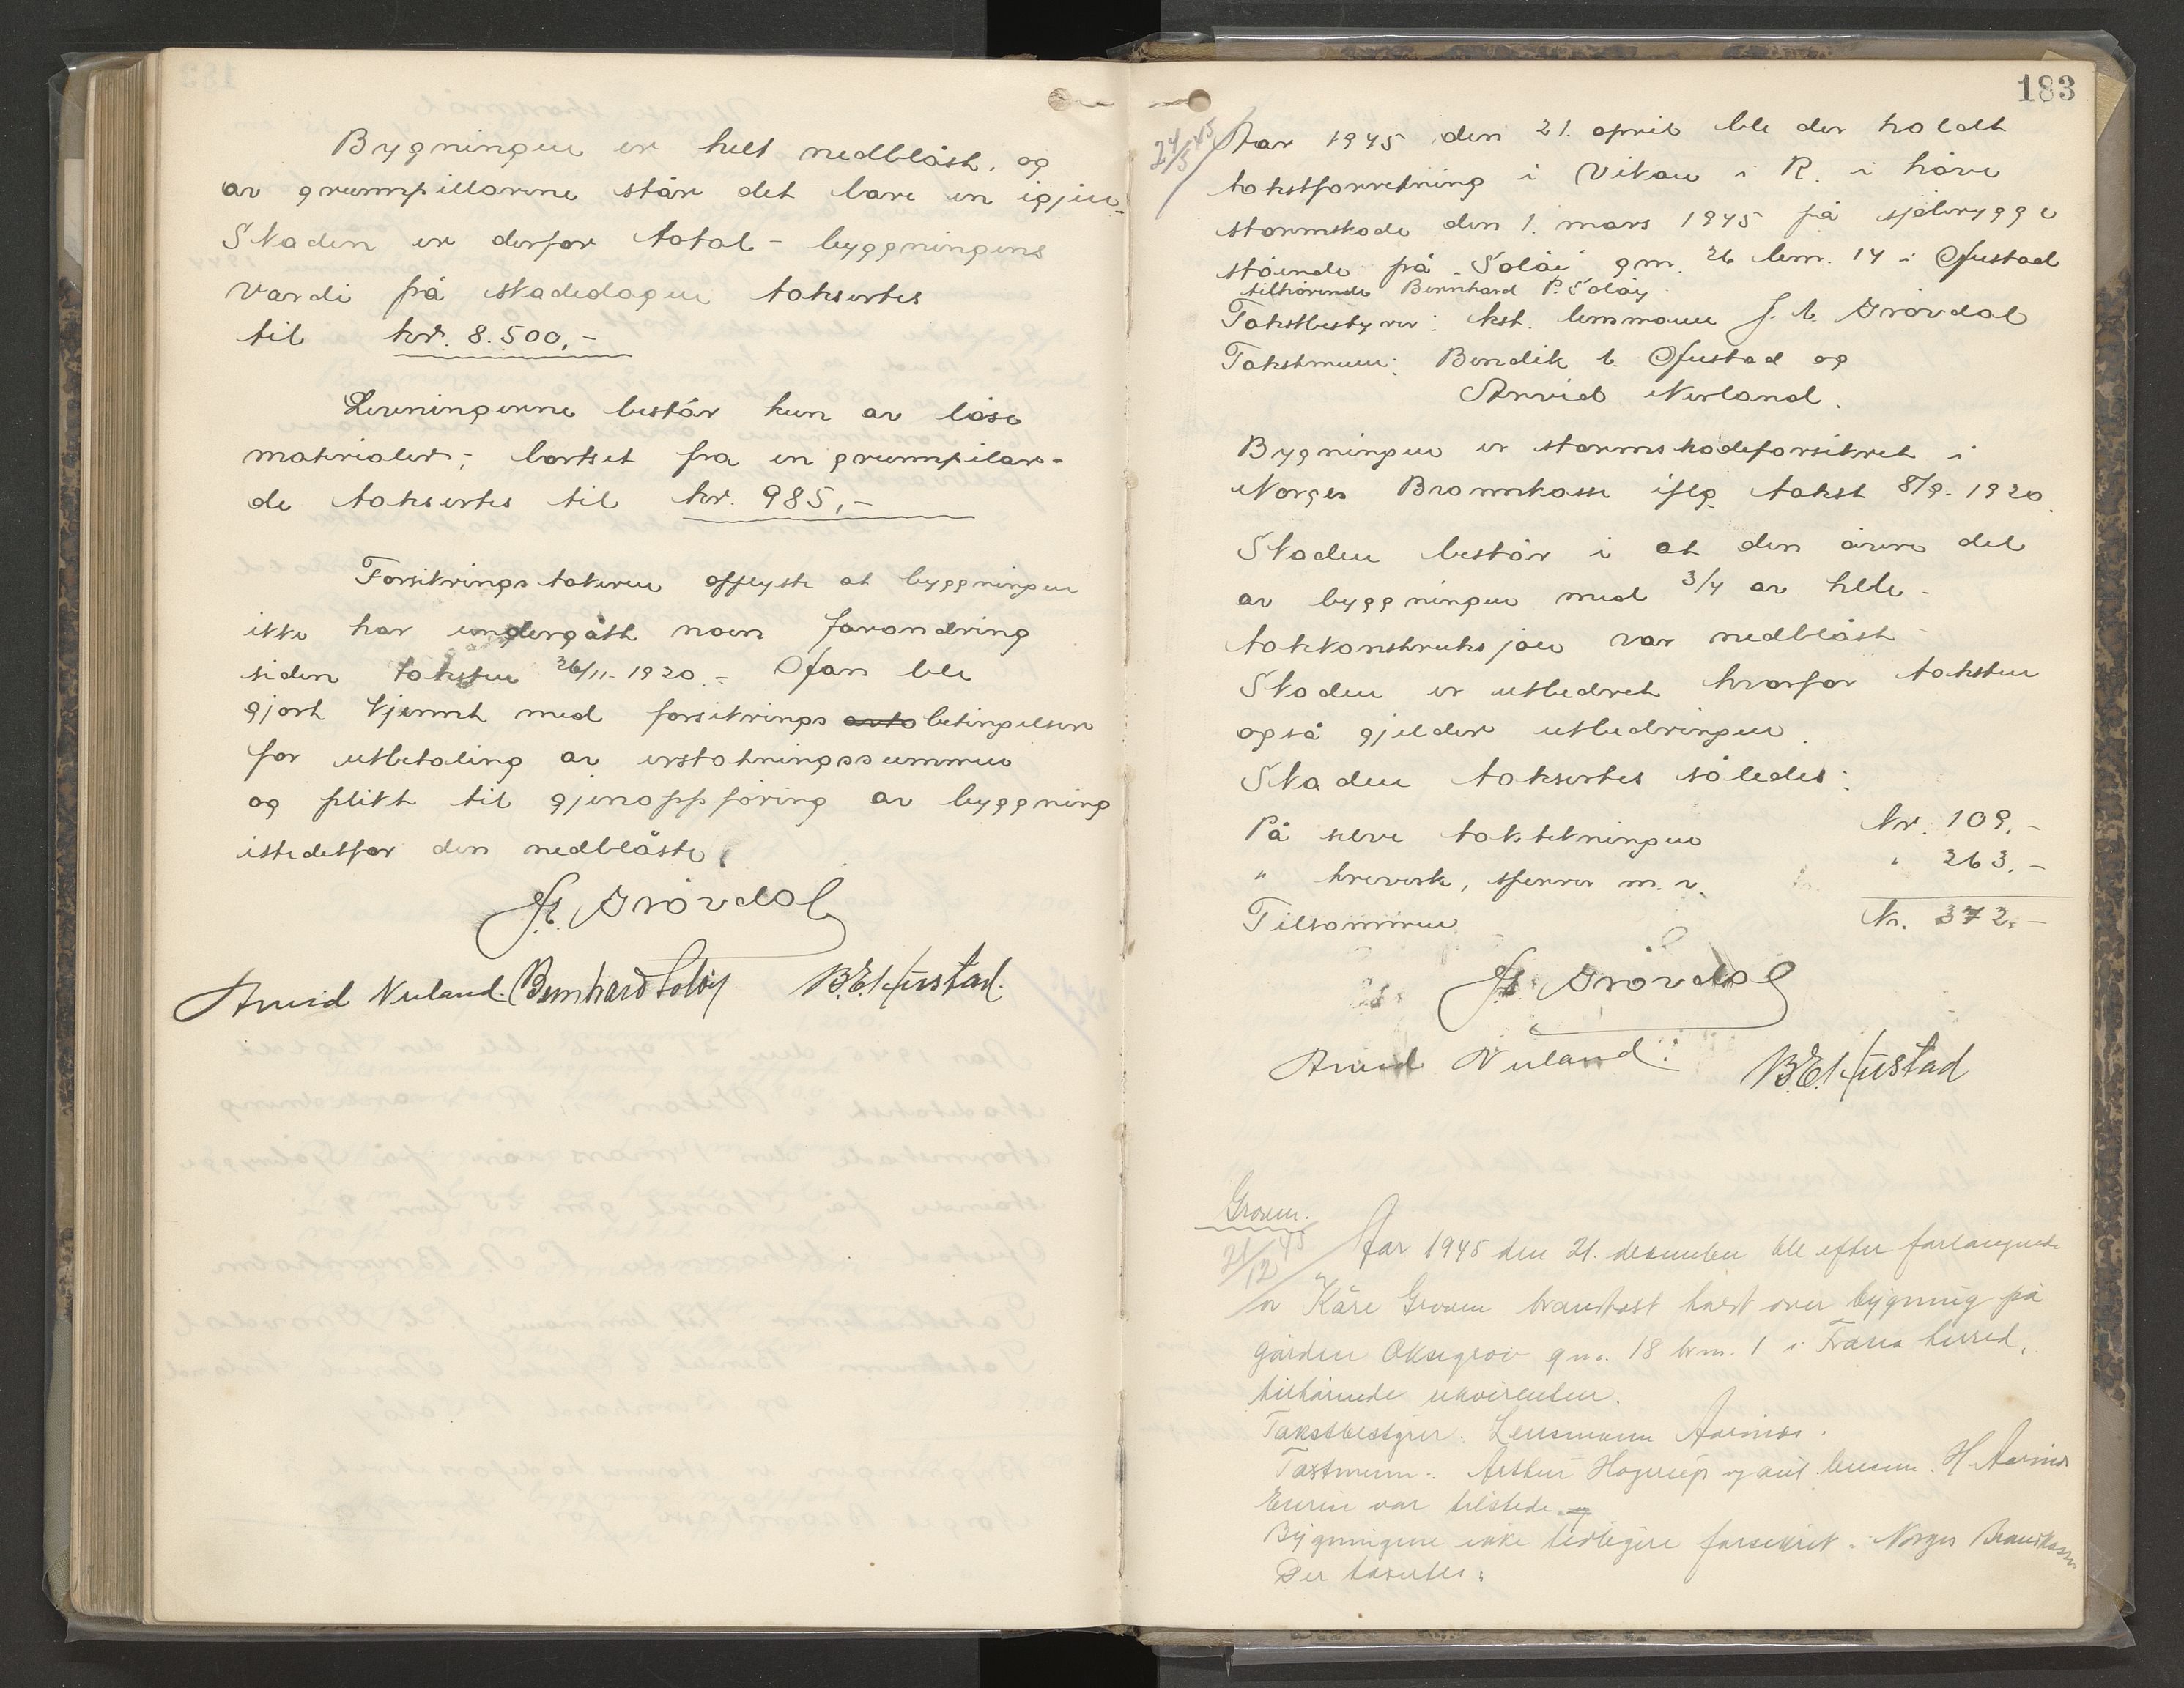 Bygningen er helt nedblåst, og
av grunnpillarene står det bare en igjen.
Skaden er derfor total - byggningens
verdi på skadedagen taksertes
til kr. 8.500,-
Levningerne består kun av løse
materialer; bortset fra en grunnpilar -
de taksertes til kr. 985,-
Forsikringstakeren opplyste at byggningen
ikke har undergått noen forandring
siden taksten 26/11-1920. - Han ble
gjort kjennt med forsikrings betingelsene
for utbetaling av erstatningssummen
og plikt til gjenoppføring av byggning
istedetfor den nedblåste.
Jr. Grövdal
Arvid Nerland. Bernhard Solöy B.E. Hustad.
183
24/5 45
Aar 1945 den 21. april ble der holdt
takstforretning i Vikan i R. i høve
stormskade den 1. mars 1945 på sjøbrygge
stående på "Soløi" gm. 26 bm. 14 i Hustad
tilhørende Bernhard P. Soløy
Takstbestyrer: kst. lensmann J. E. Grövdal
Takstmenn: Bendik E. Hustad og
Arvid Nerland.
Bygningen er stormskadeforsikret i
Norges Brannkasse iflg. takst 8/9-1920.
Skaden består i at den øvre del
av byggningen med 3/4 av hele
takkonstruksjoen var nedblåst
Skaden er utbedret hvorfor taksten
også gjelder utbedringen.
Skaden taksertes således:
På selve taktekningen kr. 109,-
" treverk, sperrer m.v. " 263,-
Tilsammen kr. 372,-
Jr. Grövdal
Arvid Nerland. B.E. Hustad
Groven.
21/12 45
Aar 1945 den 21. desember ble efter forlangende
av Kåre Groven brandtakst holdt over bygning på
gården Oksegrov gno. 18 brn. 1 i Fræna herred,
tilhørende rekvirenten.
Takstbestyrer: Lensmann Aarnes.
Takstmenn: Arthur Hagerup og ass. lensm. H. Aarnes
Eieren var tilstede.
Bygningene ikke tidligere forsikret i Norges Brandkasse
Der takserter: